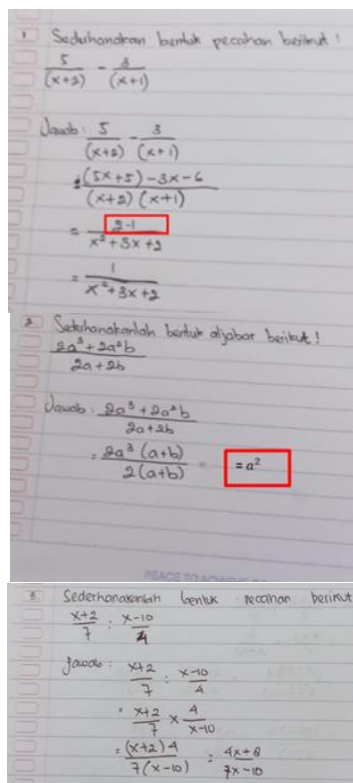 1 Sederhanakan bentuk pecahan berikut !
5/(x+2) - 3/(x+1)
Jawab : 5/(x+2) - 3/(x+1)
= (5x+5) - 3x - 6 / (x+2) (x+1)
= 2-1 / x² + 3x + 2
= 1 / x² + 3x + 2
2. Sederhanakanlah bentuk aljabar berikut !
2a³ + 2a²b / 2a + 2b
Jawab : 2a³ + 2a²b / 2a + 2b
= 2a³ (a+b) / 2 (a+b) = a²
3. Sederhanakanlah bentuk pecahan berikut
x+2/7 : x-10/4
Jawab : x+2/7 : x-10/4
= x+2/7 × 4/x-10
= (x+2) 4 / 7 (x-10) = 4x+8 / 7x-10